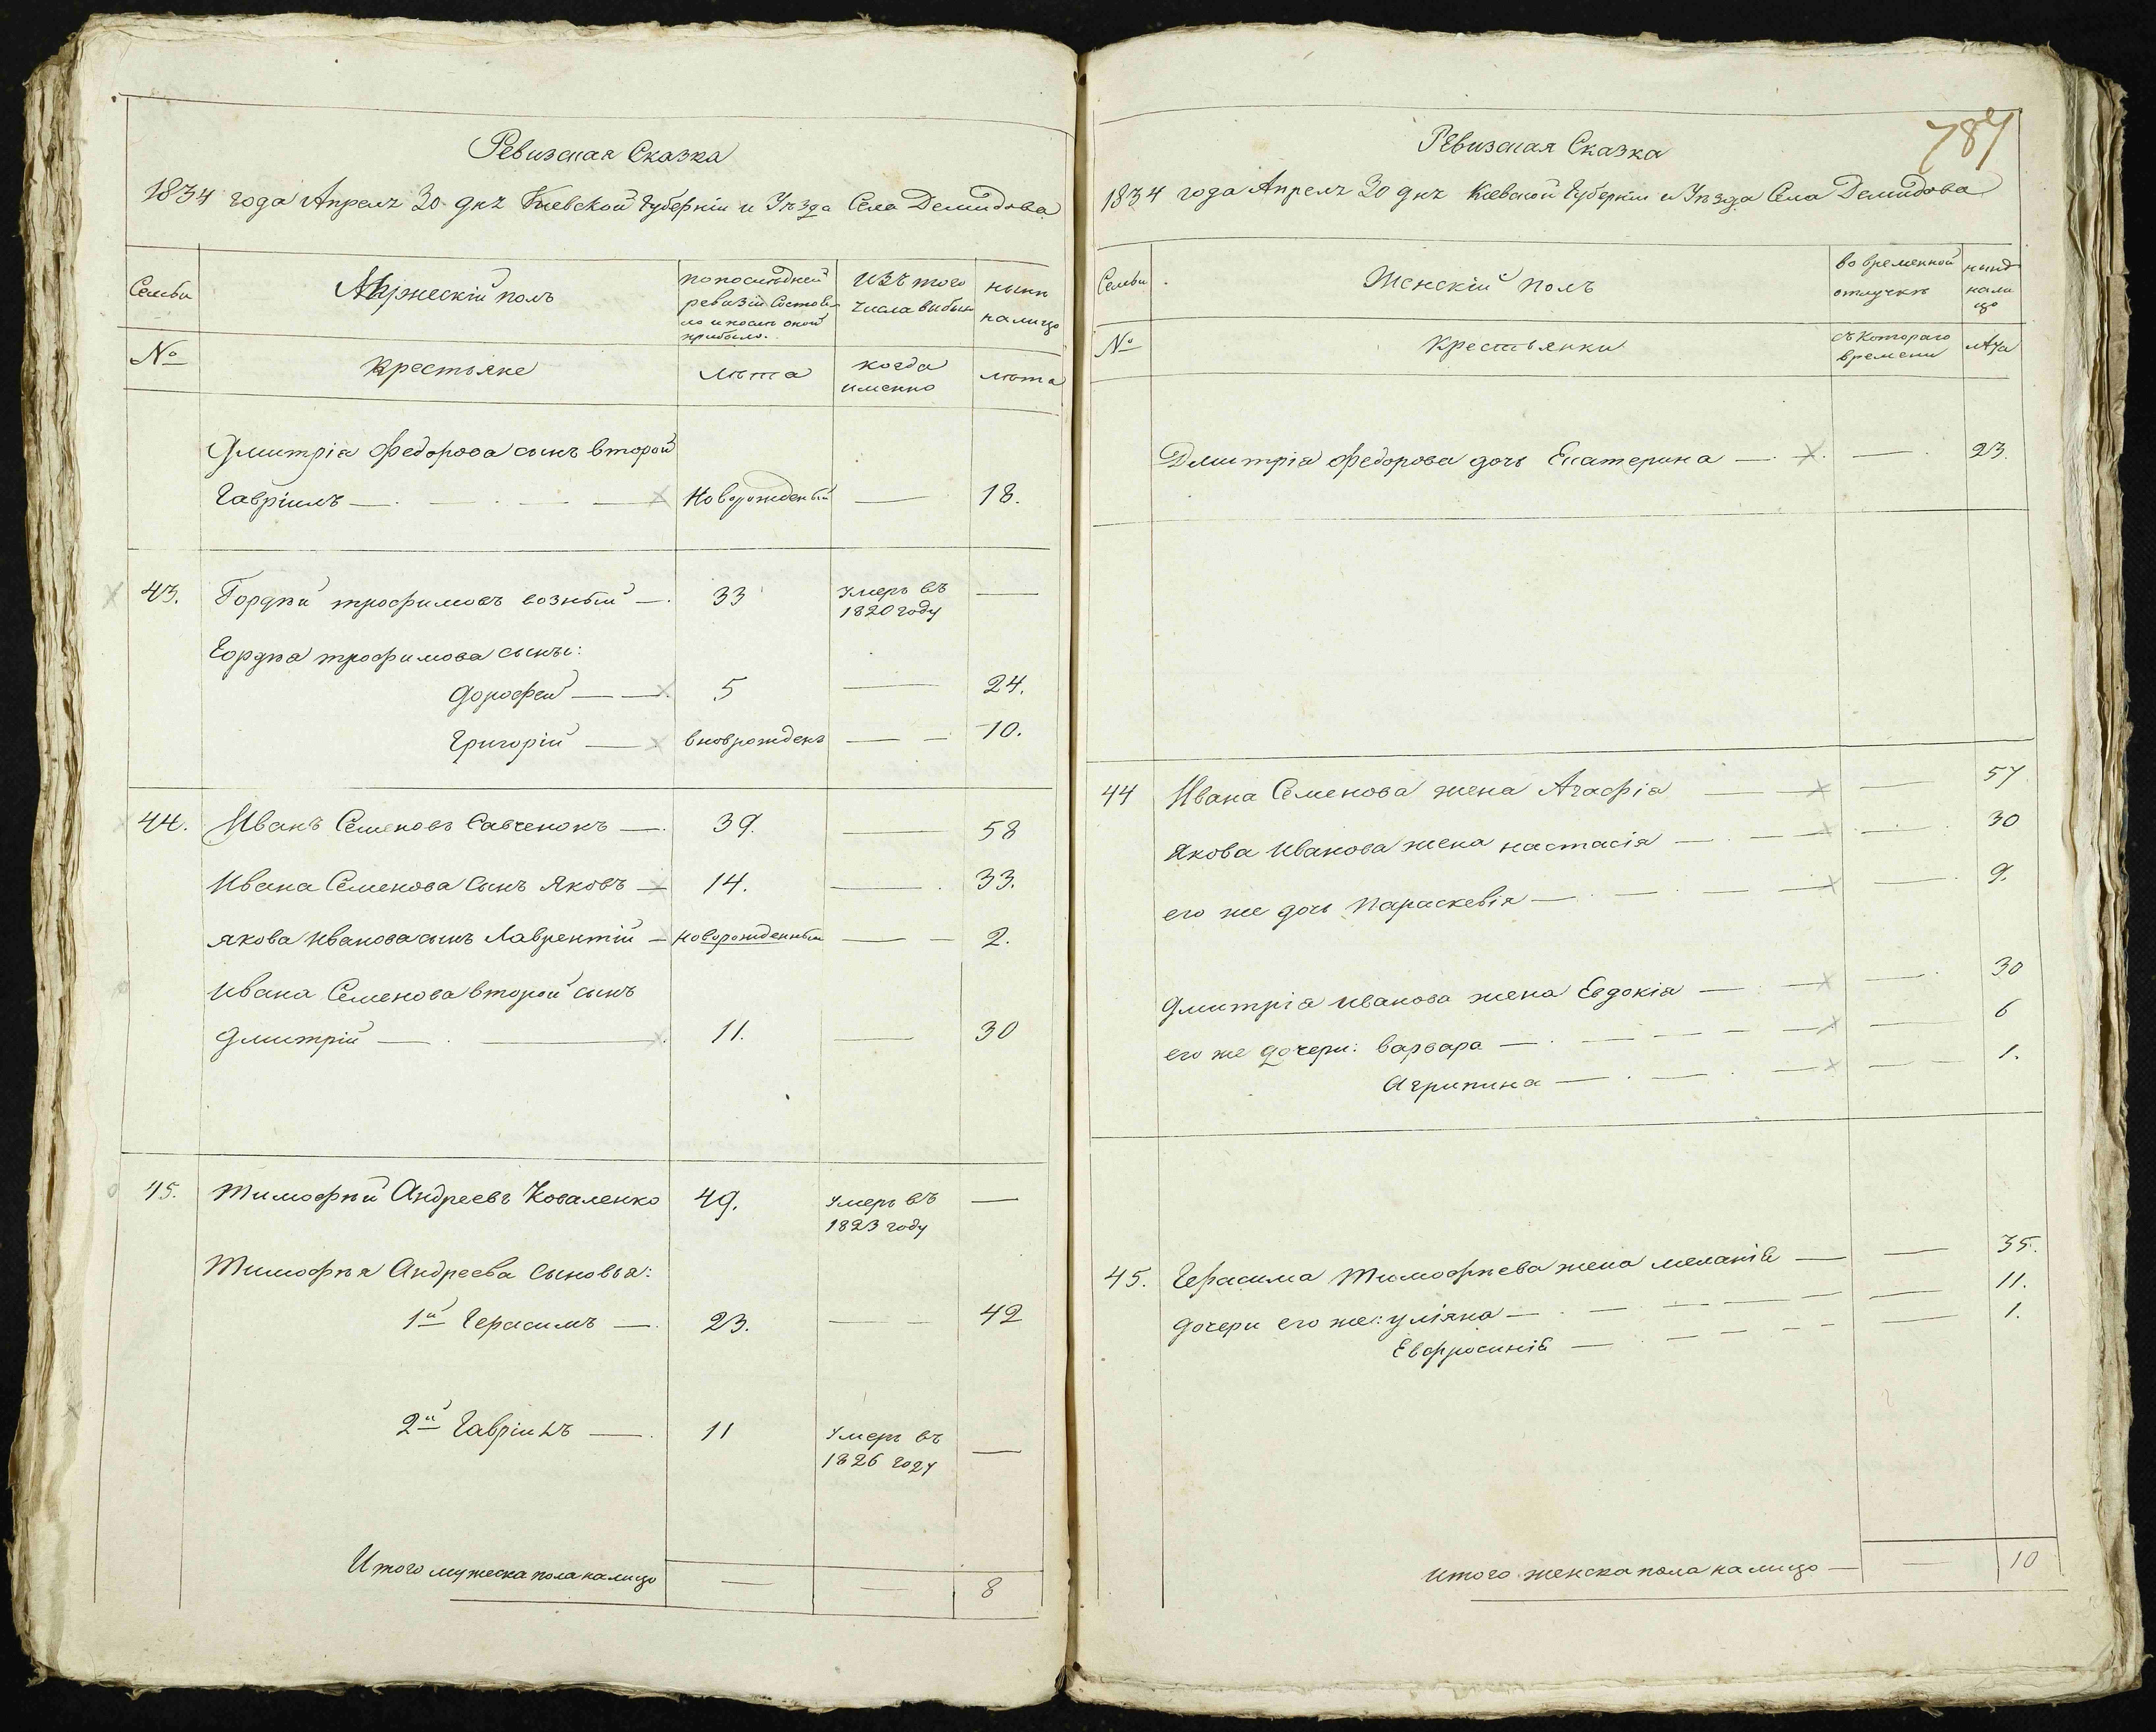 Ревизская Сказка
1834 года Апреля 30 дня Киевской Губерніи и Уѣзда Села Демидова
Семьи
Мужескій полъ
по последней ревизіи Состояло и после оной прибыло.
Изъ того числа выбыло
нынѣ на лицо
№
Крестьяне
лѣта
когда именно
лѣта
Дмитрія Федорова сынъ второй
Гавріилъ — Новорожденый — 18.
43. Гордѣй трофимовъ возный — 33 Умеръ въ —
1820 году
Гордѣя трофимова сыны:
Дорофей — 5 — 24.
Григорій — вновьрожденъ — 10.
44. Иванъ Семеновъ Савченокъ — 39. — 58
Ивана Семенова Сынъ Яковъ — 14. — 33.
якова иванова сынъ Лаврентій — новорожденный — 2.
ивана Семенова второй сынъ
Дмитрій — 11. — 30
45. Тимофѣй Андреевъ Коваленко 49. Умеръ въ —
1823 году
Тимофѣя Андреева Сыновья:
1й Герасимъ — 23. — 42
2й Гавріилъ — 11 Умеръ въ —
1826 году
Итого мужеска пола на лицо — — 8
787
Ревизская Сказка
1834 года Апреля 30 дня Киевской Губерніи и Уѣзда Села Демидова
Семьи
Женскій полъ
во временной отлучкѣ
нынѣ на лицо
№
Крестьянки
съ котораго времени
Лѣта
Дмитрія Федорова дочь Екатерина — — 23.
44 Ивана Семенова жена Агафія — — 57
Якова Иванова жена настасія — — 30
его же дочь Параскевія — — 9.
Дмитрія иванова жена Евдокія — — 30
его же дочери: варвара — — 6
Агрипина — — 1.
45. Герасима Тимофѣева жена меланія — — 35.
дочери его же: уліяна — — 11.
Евфросинія — — 1.
итого женска пола на лицо — — 10